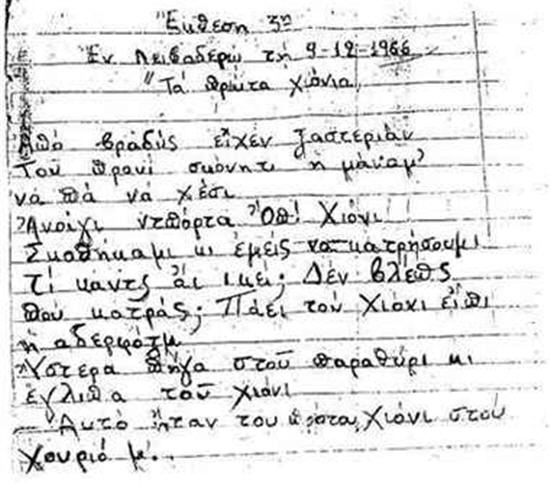 Ἔκθεση 3η
Ἐν Λειβαδερῷ τῇ 9-12-1966
"Τά πρῶτα χιόνια
Ἀπό βραδύς εἶχεν ξαστεριάν
Τοῦ πρανί σκόνητι ἡ μάναμ'
νά πά νά χέσι
Ἀνοίγι ντπόρτα Ὀπ! Χιόνι
Σκώθηκαμι κι ἐμείς να κατρήσουμι
Τί κάντς ἀι ικεί; Δέν βλέπς
που κατράς; Πάει τοῦ χιόνι εἶπι
ἡ αδερφότμ
Ὕστερα πῆγα στοῦ παραθύρι κι
ἔγλιπα τοῦ χιόνι
— Αυτό ἦταν του πρώτα χιόνι στού
χουριό μ..